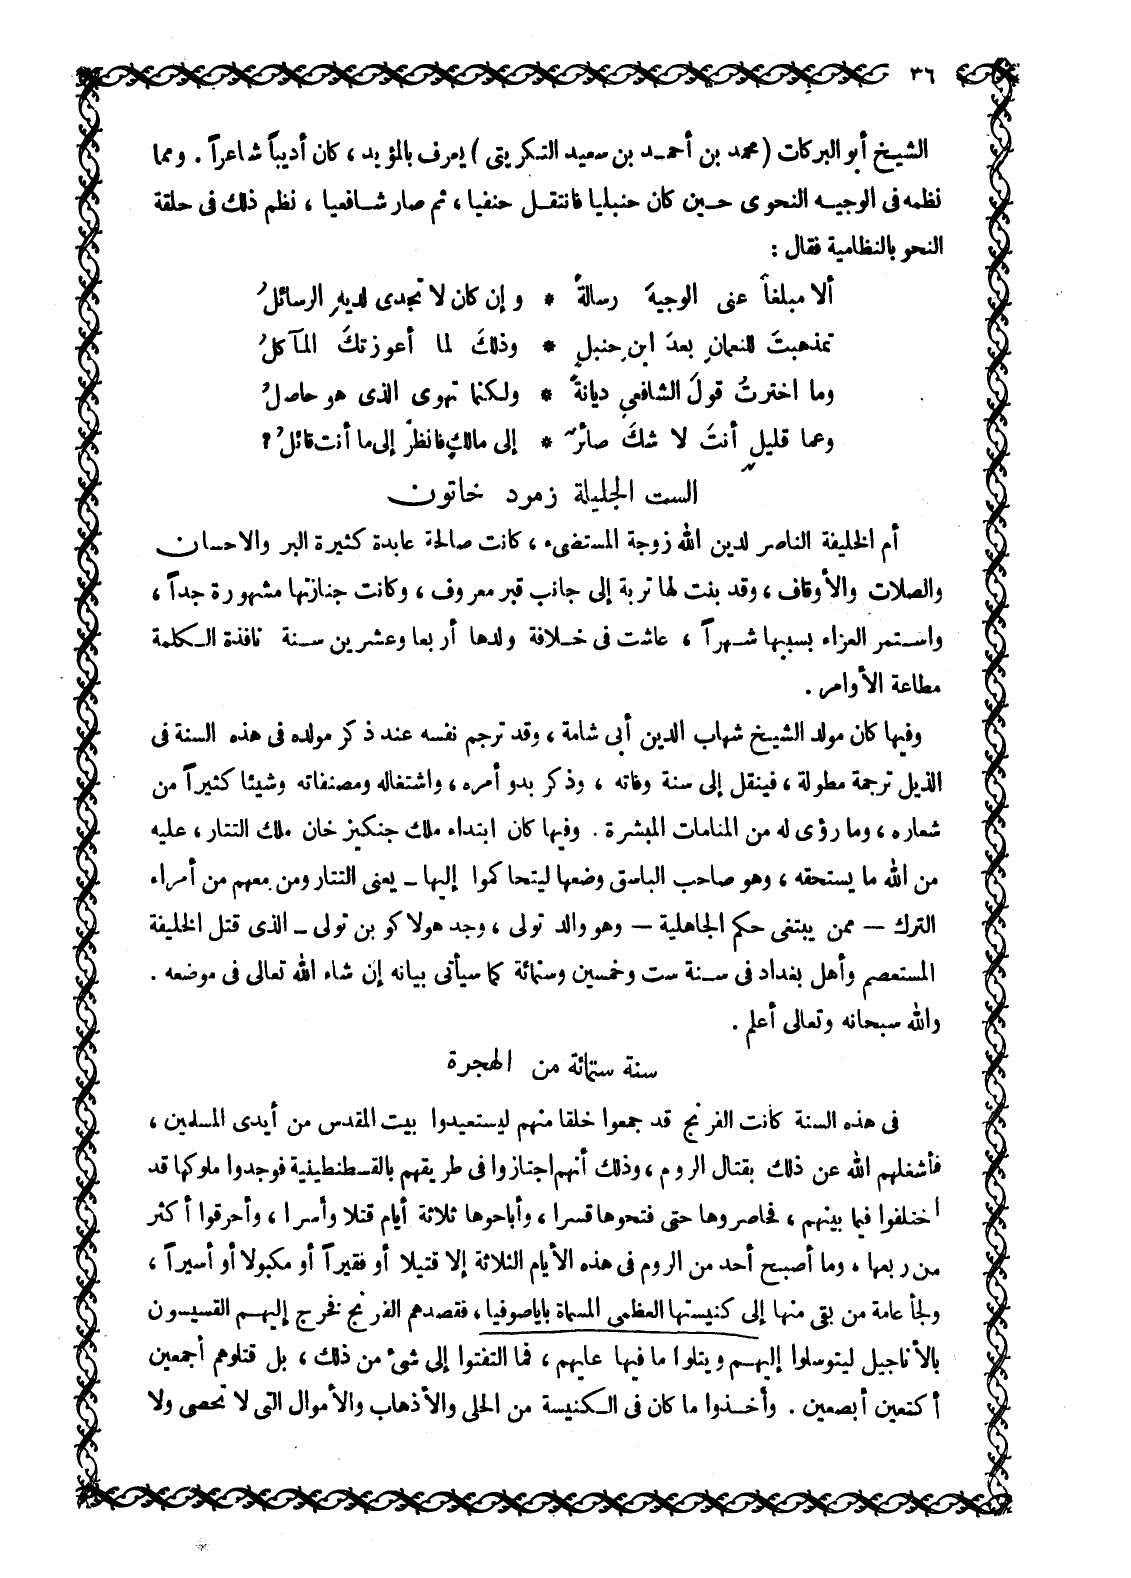 ٣٦
الشيخ أبو البركات (محمد بن أحمد بن سعيد التكريتى) يعرف بالمؤيد، كان أديباً شاعراً. ومما
نظمه فى الوجيه النحوى حين كان حنبليا فانتقل حنفيا، ثم صار شافعيا، نظم ذلك فى حلقة
النحو بالنظامية فقال:
ألا مبلغاً عنى الوجيهَ رسالةً * وإن كان لا تجدى لديهِ الرسائلُ
تمذهبتَ للنعمانِ بعدَ ابنِ حنبلٍ * وذلكَ لما أعوزتكَ المآكلُ
وما اخترتُ قولَ الشافعىِ ديانةً * ولكنما تهوى الذى هو حاصلُ
وعما قليلٍ أنتَ لا شكَ صائرٌ * إلى مالكٍ فانظرْ إلى ما أنت قائلُ؟
الست الجليلة زمرد خاتون
أم الخليفة الناصر لدين الله زوجة المستضىء، كانت صالحة عابدة كثيرة البر والاحسان
والصلات والأوقاف، وقد بنت لها تربة إلى جانب قبر معروف، وكانت جنازتها مشهورة جداً،
واستمر العزاء بسببها شهراً، عاشت فى خلافة ولدها أربعا وعشرين سنة نافذة الكلمة
مطاعة الأوامر.
وفيها كان مولد الشيخ شهاب الدين أبى شامة، وقد ترجم نفسه عند ذكر مولده فى هذه السنة فى
الذيل ترجمة مطولة، فينقل إلى سنة وفاته، وذكر بدو أمره، واشتغاله ومصنفاته وشيئا كثيراً من
شعاره، وما رؤى له من المنامات المبشرة. وفيها كان ابتداء ملك جنكيز خان ملك التتار، عليه
من الله ما يستحقه، وهو صاحب الباسق وضعها ليتحاكموا إليها ـ يعنى التتار ومن معهم من أمراء
الترك ـ ممن يبتغى حكم الجاهلية ـ وهو والد تولى، وجد هولاكو بن تولى ـ الذى قتل الخليفة
المستعصم وأهل بغداد فى سنة ست وخمسين وستمائة كما سيأتى بيانه إن شاء الله تعالى فى موضعه.
والله سبحانه وتعالى أعلم.
سنة ستمائة من الهجرة
فى هذه السنة كانت الفرنج قد جمعوا خلقا منهم ليستعيدوا بيت المقدس من أيدى المسلمين،
فأشغلهم الله عن ذلك بقتال الروم، وذلك أنهم اجتازوا فى طريقهم بالقسطنطينية فوجدوا ملوكها قد
اختلفوا فيما بينهم، فحاصروها حتى فتحوها قسرا، وأباحوها ثلاثة أيام قتلا وأسرا، وأحرقوا أكثر
من ربعها، وما أصبح أحد من الروم فى هذه الأيام الثلاثة إلا قتيلا أو فقيراً أو مكبولا أو أسيراً،
ولجأ عامة من بقى منها إلى كنيستها العظمى المسماة باياصوفيا، فقصدهم الفرنج فخرج إليهم القسيسون
بالأناجيل ليتوسلوا إليهم ويتلوا ما فيها عليهم، فما التفتوا إلى شئ من ذلك، بل قتلوهم أجمعين
أكتعين أبصعين. وأخذوا ما كان فى الكنيسة من الحلى والأذهاب والأموال التى لا تحصى ولا